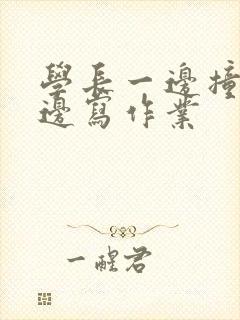 學長一邊撞
邊寫作業
一醒君